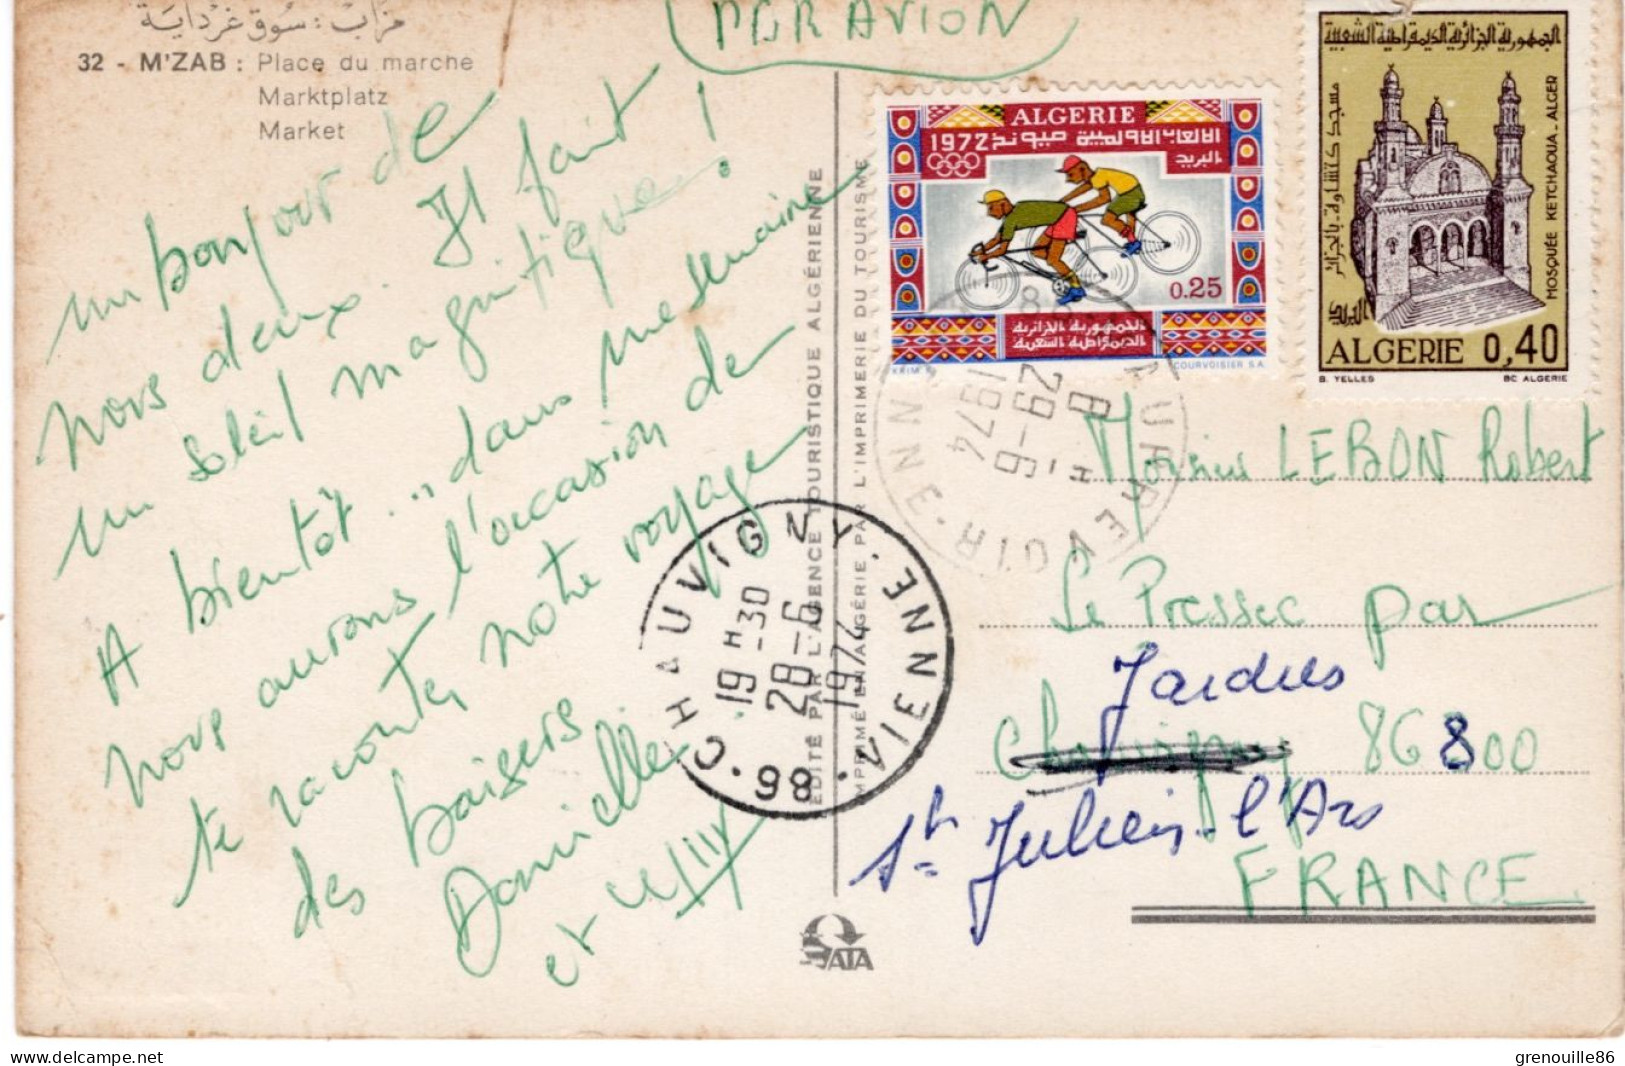 مزاب : سوق غرداية
32 - M'ZAB : Place du marche
Marktplatz
Market
PAR AVION
un bonjour de
nous deux. Il fait
un soleil magnifique !
A bientôt .. dans une semaine
nous aurons l'occasion de
te raconter notre voyage
des baisers
Danielle
et
EDITÉ PAR L'AGENCE TOURISTIQUE ALGÉRIENNE
IMPRIMÉ EN ALGÉRIE PAR L'IMPRIMERIE DU TOURISME
ALGERIE
1972 الالعاب الاولمبية ميونخ
البريد
0.25
الجمهورية الجزائرية
الديمقراطية الشعبية
COURVOISIER S.A.
الجمهورية الجزائرية الديمقراطية الشعبية
مسجد كتشاوة - بالجزائر
البريد
MOSQUÉE KETCHAOUA - ALGER
ALGERIE 0,40
B. YELLES
BC ALGERIE
8 H
29-6
1974
CHAUVIGNY · VIENNE · 86 ·
19 H 30
28-6
1974
Monsieur LEBON Robert
Le Pressec par
Jardres
Chauvigny 86800
St Julien l'Ars
FRANCE
ATA
www.delcampe.net
grenouille86